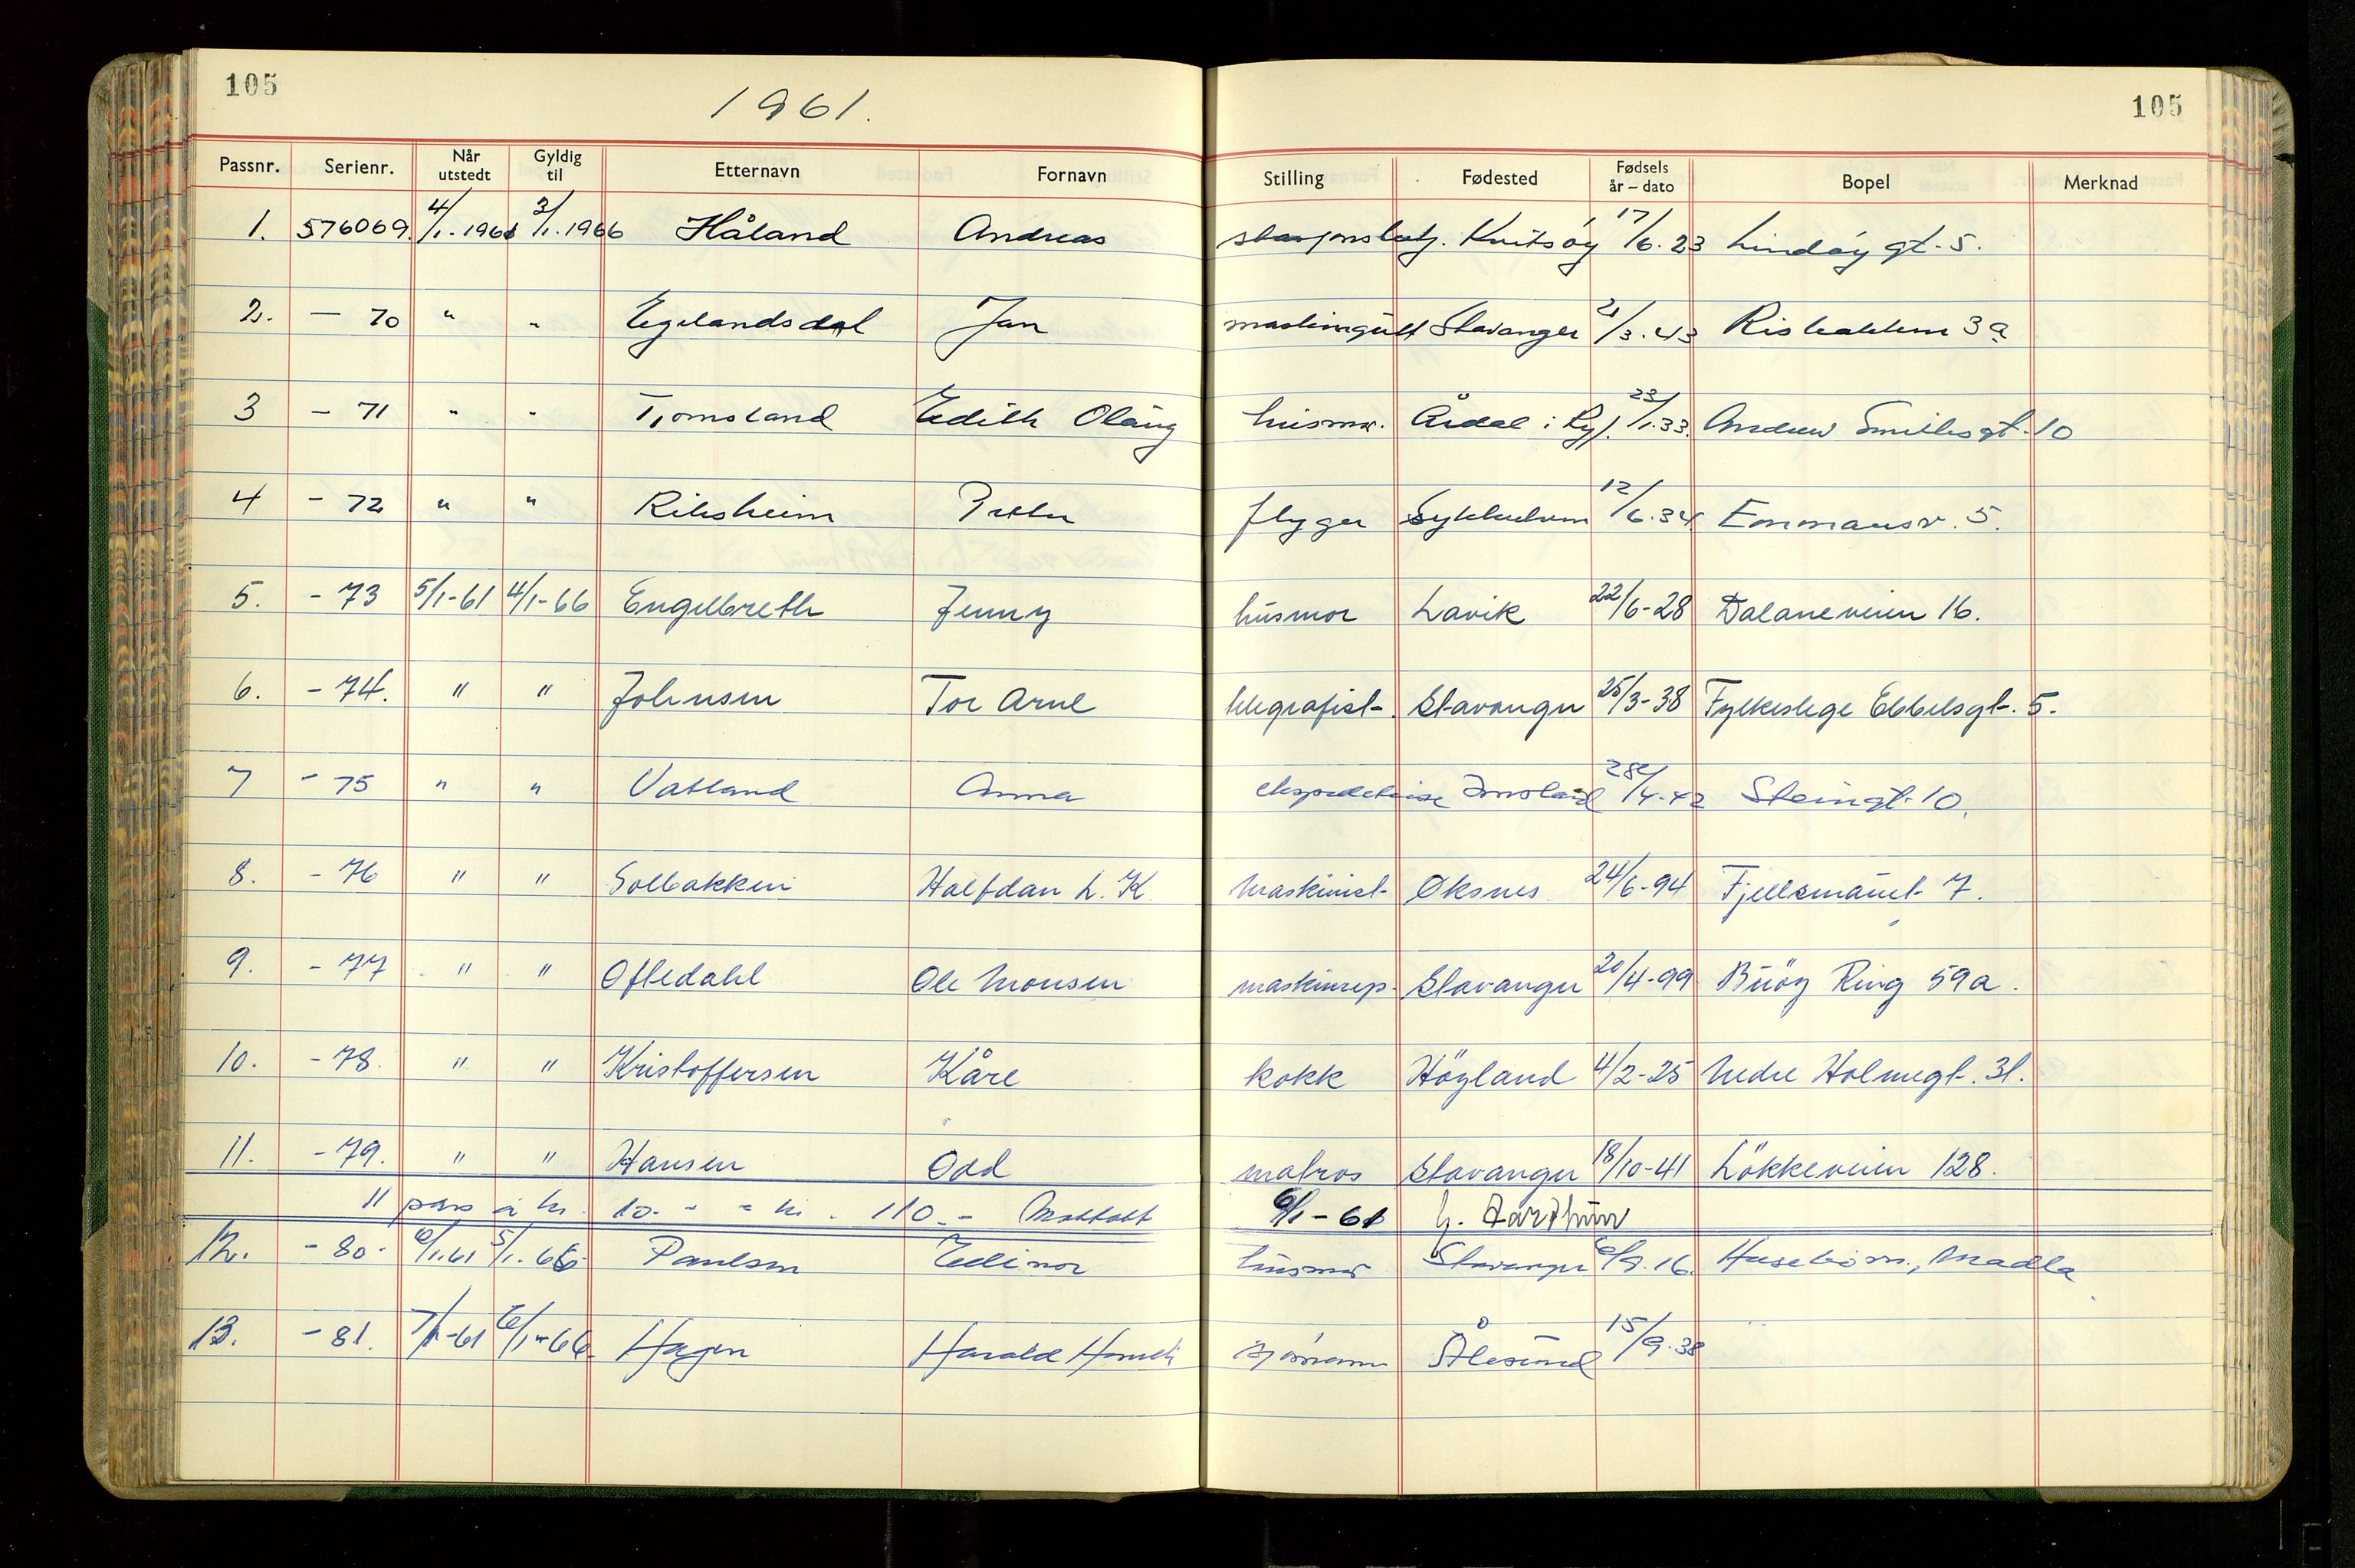 105
1961.
105
Passnr. Serienr. Når utstedt Gyldig til Etternavn Fornavn Stilling Fødested Fødsels år – dato Bopel Merknad
1. 576069. 4/1-1961 3/1.1966 Håland Andreas stasjonsbetj. Kvitsøy 17/6.23 Lindøy gt. 5.
2. — 70 " " Egelandsdal Jan maskingutt Stavanger 21/3.43 Risbakken 3a
3 – 71 " " Tjomsland Edith Olaug husmor. Årdal i Ryf. 23/1.33. Andrew Smithsgt. 10
4 – 72 " " Petter flyger Sykkulven 12/6.34 Emmausv. 5.
5. – 73 5/1-61 4/1-66 Engelbreth Jenny husmor Lavik 22/6-28 Dalaneveien 16.
6. – 74. " " Johnsen Tor Arne telegrafist. Stavanger 25/3-38 Fylkeslege Ebbelsgt. 5.
7 – 75 " " Vatland Anna ekspeditrise Imsland 28/4.42 Steingt. 10.
8. – 76 " " Solbakken Halfdan L. K. maskinist Øksnes 24/6-94 Fjellsmauet 7.
9. – 77 " " Oftedahl Ole Monsen maskinrep. Stavanger 20/4-99 Buöy Ring 59a.
10. – 78. " " Kristoffersen Kåre kokk Höyland 4/2-25 Nedre Holmegt. 31.
11. – 79. " " Hansen Odd matros Stavanger 18/10-41 Lökkeveien 128.
11 pass à kr. 10.- = kr. 110.- Mottatt 6/1-61
12. – 80. 6/1.61 5/1.66 Paulsen Edinor husmor Stavanger 6/9.16. Husebøm., Madla
13. – 81. 7/1-61 6/1-66. Hagen Harald sjømann Ålesund 15/9.38